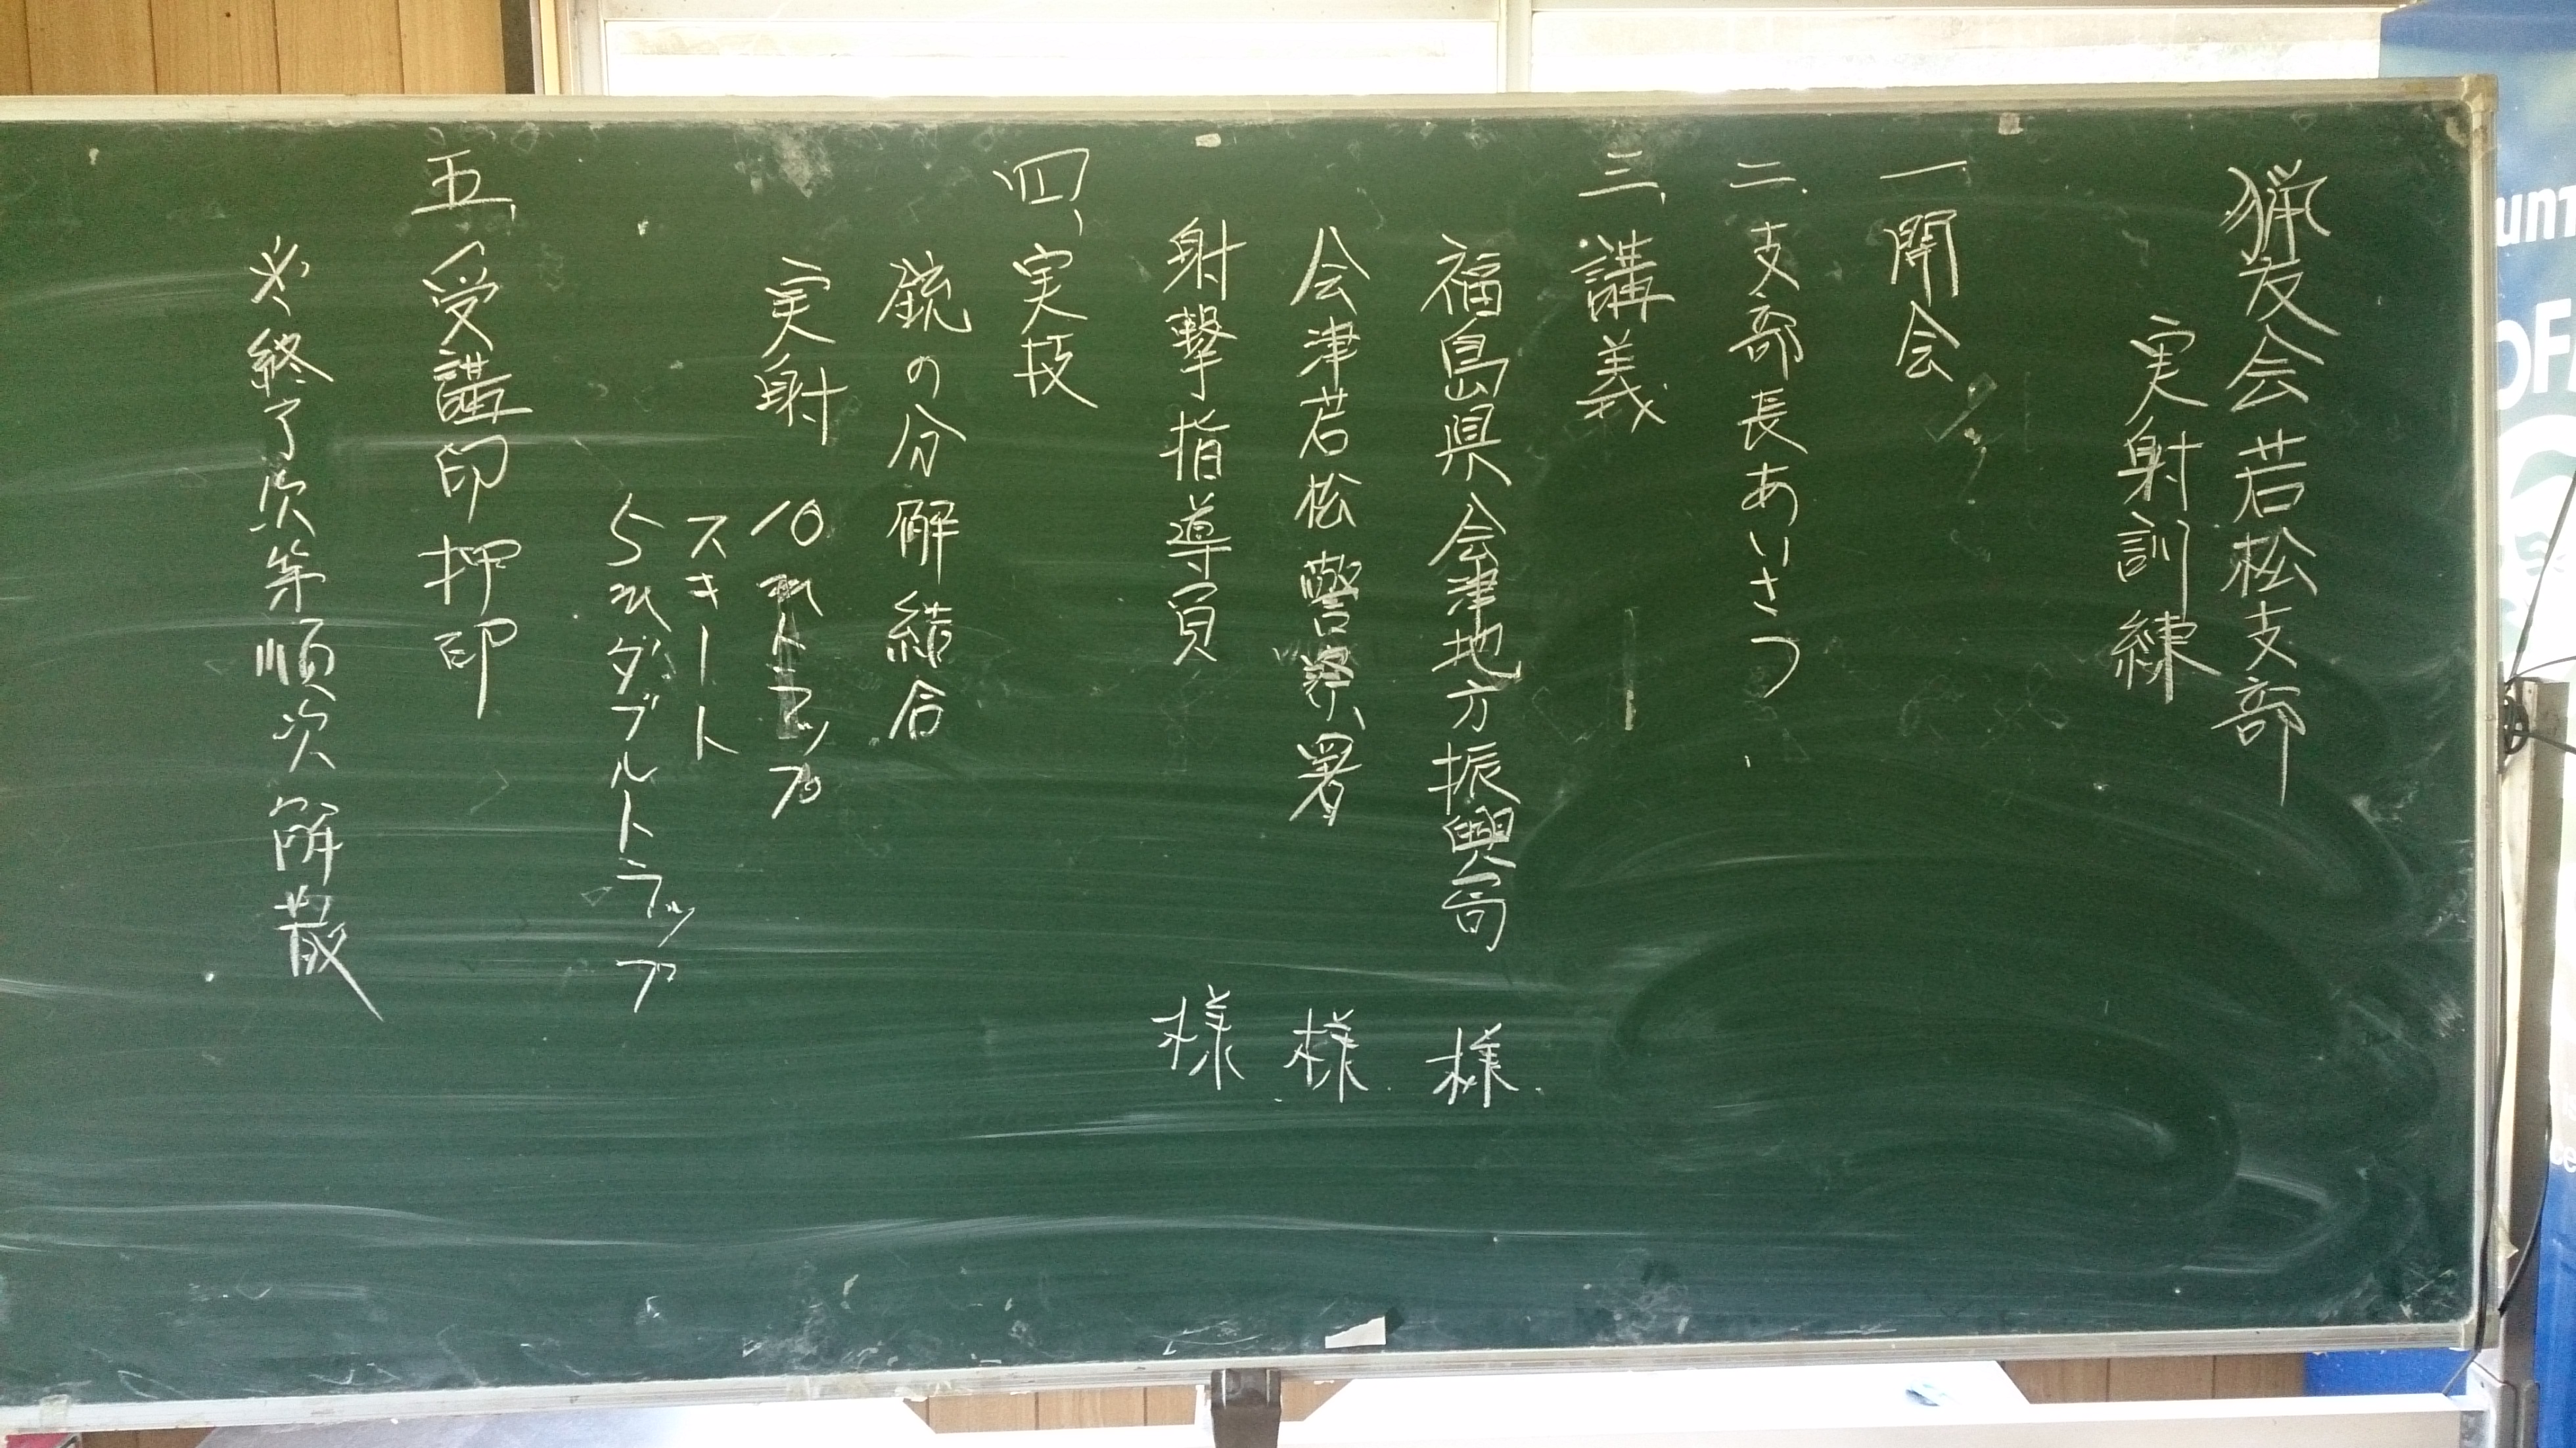 猟友会若松支部
実射訓練
一 開会
二、支部長あいさつ
三、講義
福島県会津地方振興局 様
会津若松警察署 様
射撃指導員 様
四、実技
銃の分解結合
実射 10 トラップ
スキート
5 ダブルトラップ
五、受講印押印
※終了次第順次解散